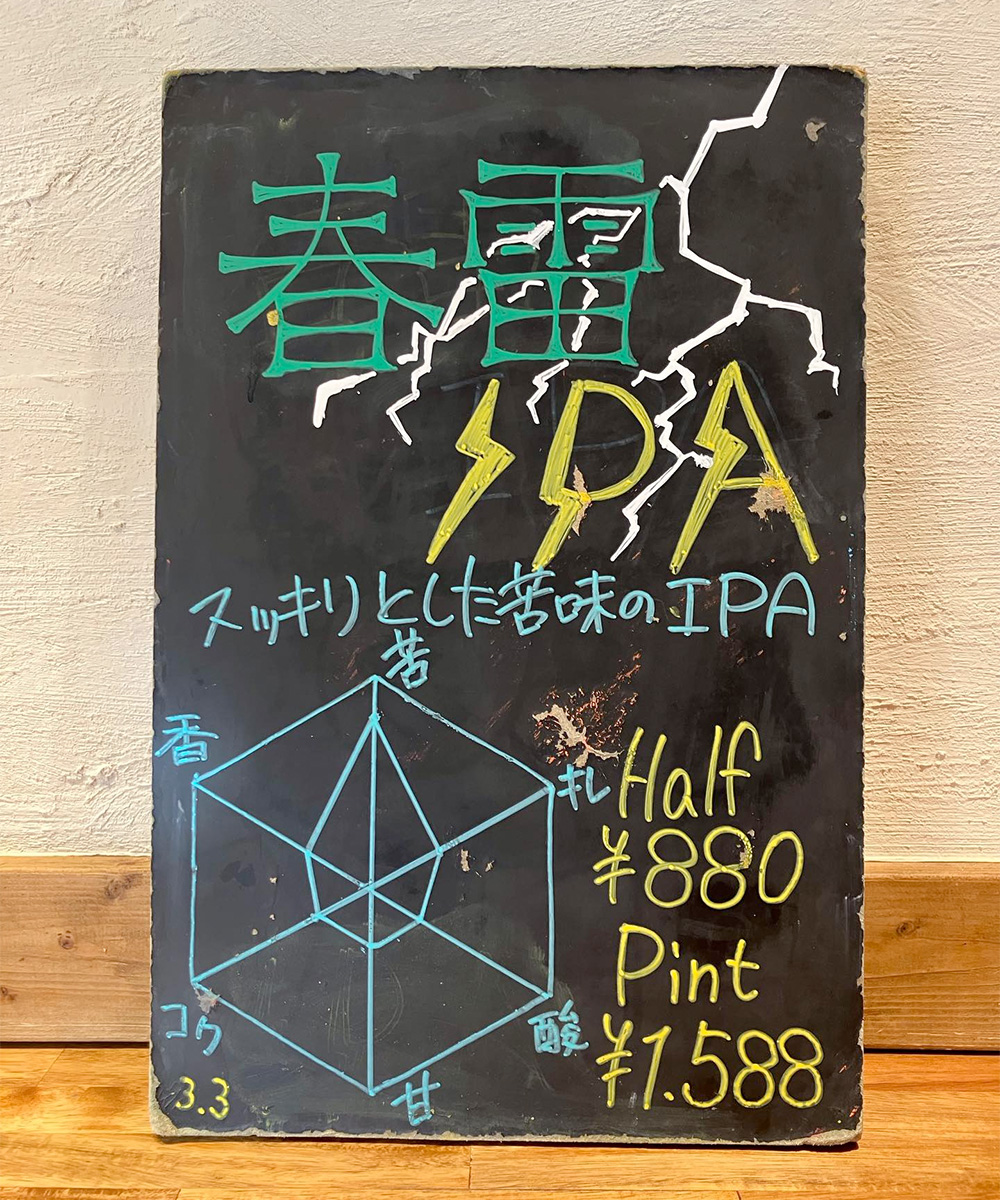 春雷
IPA
スッキリとした苦味のIPA
苦
香
キレ
コク
酸
甘
Half
¥880
Pint
¥1.588
3.3